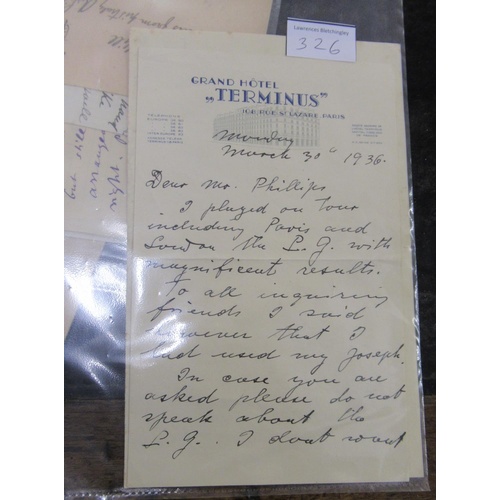 Lawrences Bletchingley
326
GRAND HÔTEL
„TERMINUS"
108, RUE St LAZARE, PARIS
Monday
March 30th 1936.
Dear Mr. Phillips
I played on tour
including Paris and
London the L. G. with
magnificent results.
To all inquiring
friends I said
however that I
had used my Joseph.
In case you are
asked please do not
speak about the
L. G.. I dont want